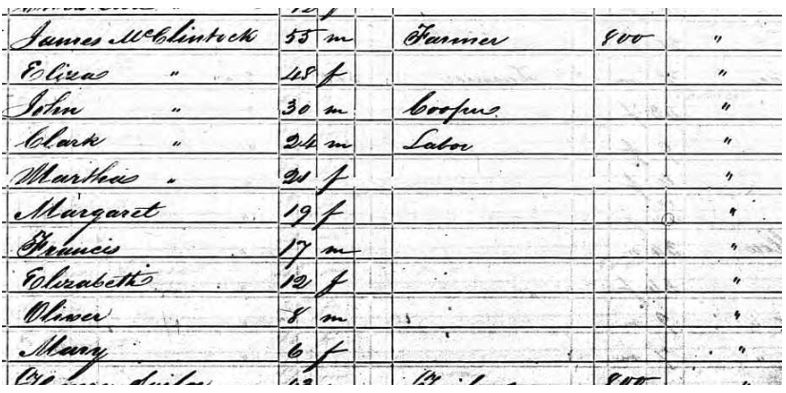 James McClintock 55 m Farmer 800 "
Eliza " 48 f "
John " 30 m Cooper "
Clark " 24 m Labor "
Martha " 21 f "
Margaret 19 f "
Francis 17 m "
Elizabeth 12 f "
Oliver 8 m "
Mary 6 f "
800 "